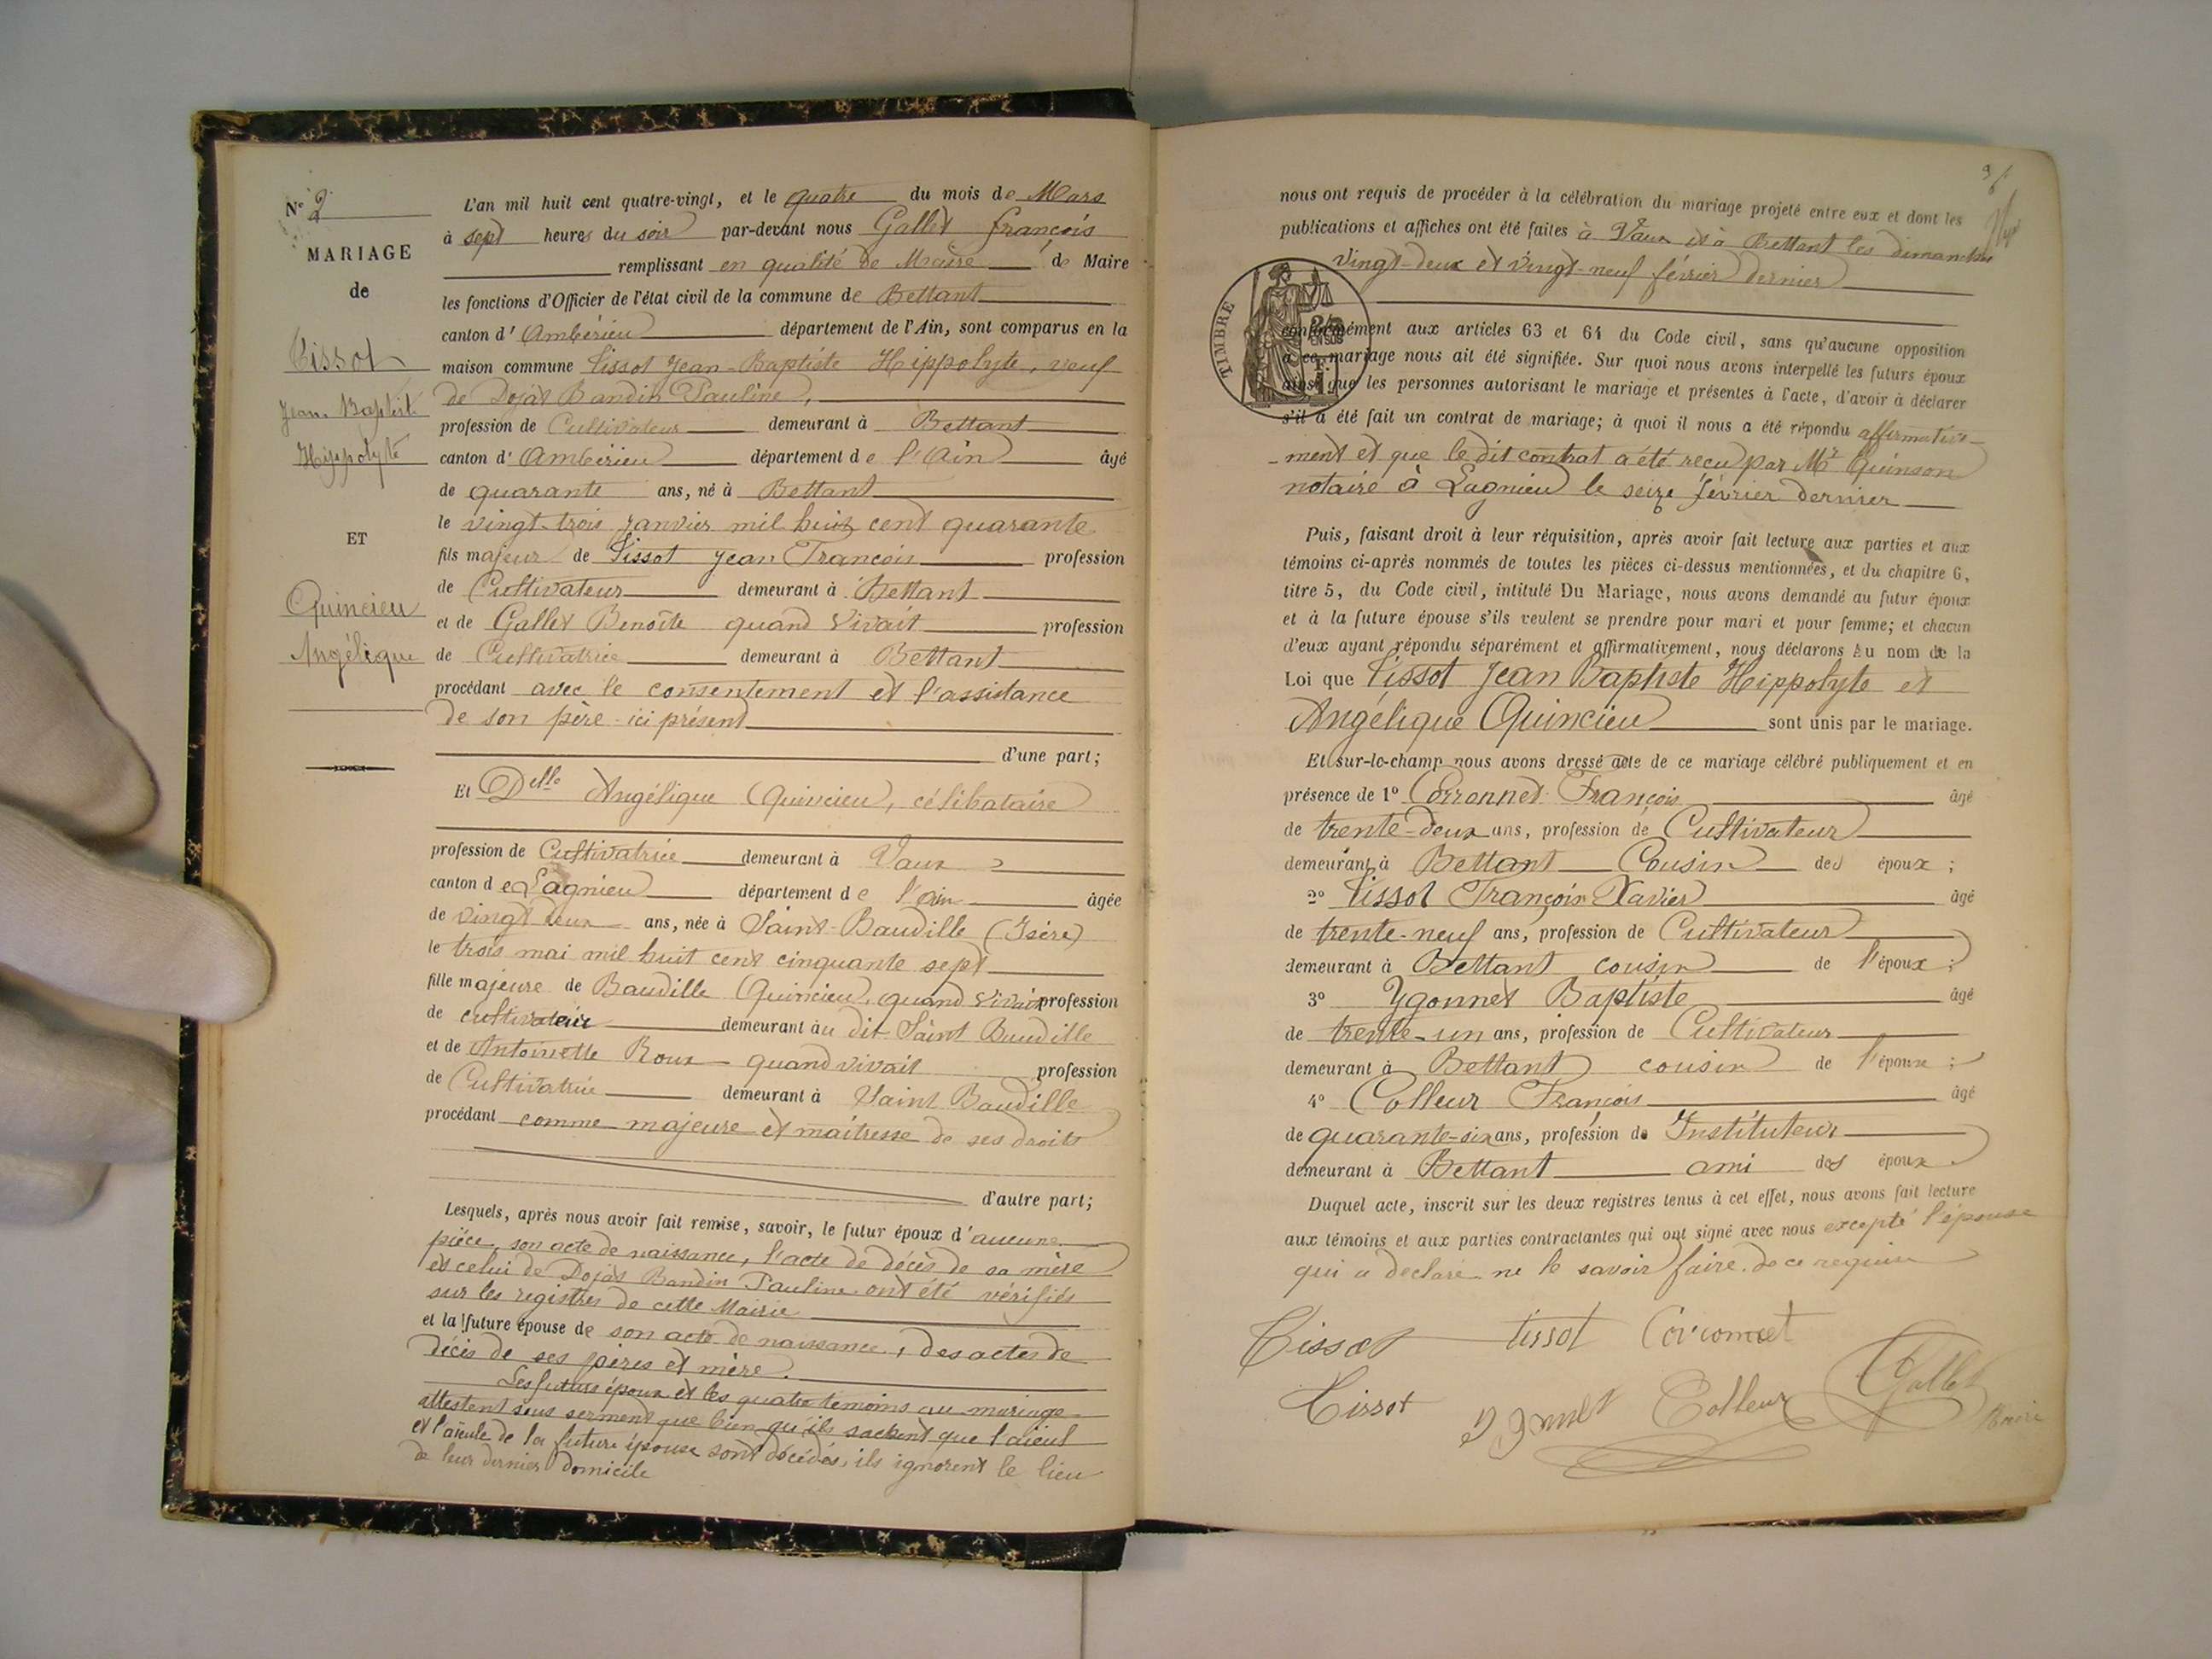 Nº 2
MARIAGE
de
Tissot
Jean Baptiste
Hippolyte
ET
Quincieu
Angélique
L'an mil huit cent quatre-vingt, et le quatre du mois de Mars
à sept heures du soir par-devant nous Gallet François
remplissant en qualité de Maire de Maire
les fonctions d'Officier de l'état civil de la commune de Bettant
canton d' Ambérieu département de l'Ain, sont comparus en la
maison commune Tissot Jean-Baptiste Hippolyte, veuf
de Dojat Bandin Pauline,
profession de Cultivateur demeurant à Bettant
canton d' Ambérieu département de l'Ain âgé
de quarante ans, né à Bettant
le vingt-trois janvier mil huit cent quarante
fils majeur de Tissot Jean François profession
de Cultivateur demeurant à Bettant
et de Gallet Benoîte quand vivait profession
de Cultivatrice demeurant à Bettant
procédant avec le consentement et l'assistance
de son père ici présent
d'une part;
Et Delle Angélique Quincieu, célibataire
profession de Cultivatrice demeurant à Vaux
canton de Lagnieu département de l'ain âgée
de vingt deux ans, née à Saint-Baudille (Isère)
le trois mai mil huit cent cinquante sept
fille majeure de Baudille Quincieu, quand vivait profession
de cultivateur demeurant au dit Saint Baudille
et de Antoinette Roux quand vivait profession
de Cultivatrice demeurant à Saint Baudille
procédant comme majeure et maîtresse de ses droits
d'autre part;
Lesquels, après nous avoir fait remise, savoir, le futur époux d'aucune
pièce, son acte de naissance, l'acte de décès de sa mère
et celui de Dojat Bandin Pauline ont été vérifiés
sur les registres de cette Mairie
et la future épouse de son acte de naissance, des actes de
décès de ses pères et mère.
Les futurs époux et les quatre témoins au mariage
attestent sous serment que bien qu'ils sachent que l'aieul
et l'aieule de la future épouse sont décédés, ils ignorent le lieu
de leur dernier domicile
nous ont requis de procéder à la célébration du mariage projeté entre eux et dont les
publications et affiches ont été faites à Vaux et à Bettant les dimanches
vingt-deux et vingt-neuf février dernier
TIMBRE
2/10 EN SUS
conformément aux articles 63 et 64 du Code civil, sans qu'aucune opposition
à ce mariage nous ait été signifiée. Sur quoi nous avons interpellé les futurs époux
ainsi que les personnes autorisant le mariage et présentes à l'acte, d'avoir à déclarer
s'il a été fait un contrat de mariage; à quoi il nous a été répondu affirmative-
-ment et que le dit contrat a été reçu par Mr Quinson
notaire à Lagnieu le seize février dernier
Puis, faisant droit à leur réquisition, après avoir fait lecture aux parties et aux
témoins ci-après nommés de toutes les pièces ci-dessus mentionnées, et du chapitre 6,
titre 5, du Code civil, intitulé Du Mariage, nous avons demandé au futur époux
et à la future épouse s'ils veulent se prendre pour mari et pour femme; et chacun
d'eux ayant répondu séparément et affirmativement, nous déclarons Au nom de la
Loi que Tissot Jean Baptiste Hippolyte et
Angélique Quincieu sont unis par le mariage.
Et sur-le-champ nous avons dressé acte de ce mariage célébré publiquement et en
présence de 1º Corronnet François âgé
de trente-deux ans, profession de Cultivateur
demeurant à Bettant Cousin des époux ;
2º Tissot François Xavier âgé
de trente-neuf ans, profession de Cultivateur
demeurant à Bettant cousin de l'époux ;
3º Ygonnet Baptiste âgé
de trente-un ans, profession de Cultivateur
demeurant à Bettant cousin de l'époux ;
4º Colleur François âgé
de quarante-six ans, profession de Instituteur
demeurant à Bettant ami des époux
Duquel acte, inscrit sur les deux registres tenus à cet effet, nous avons fait lecture
aux témoins et aux parties contractantes qui ont signé avec nous excepté l'épouse
qui a déclaré ne le savoir faire de ce requise
Tissot tissot Corronnet
Tissot Ygonnet Colleur Gallet
Maire